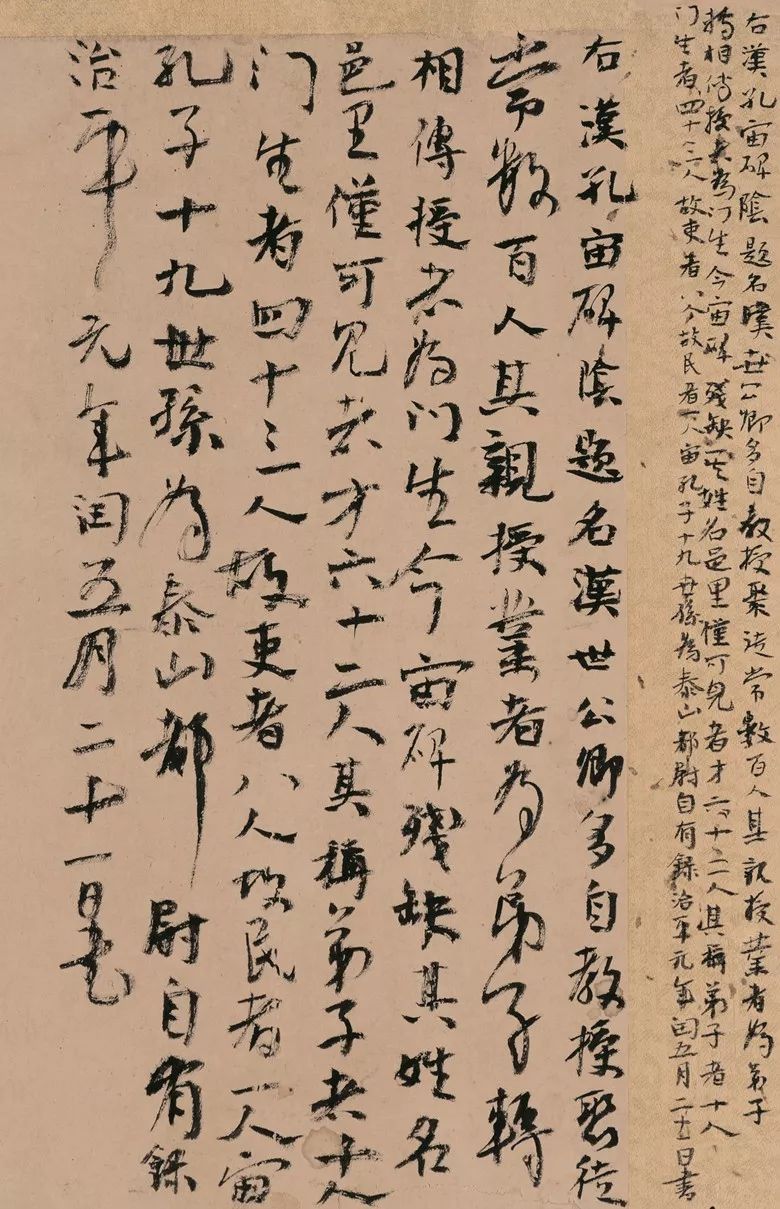 右漢孔宙碑陰題名漢世公卿多自教授聚徒常數百人其親授業者為弟子
轉相傳授者為门生今宙碑殘缺其姓名邑里僅可見者才六十二人其稱弟子者十人
门生者四十三人故吏者八人故民者一人宙孔子十九世孫為泰山都尉自有錄治平元年閏五月二十一日書
右漢孔宙碑陰題名漢世公卿多自教授聚徒
常數百人其親授業者為弟子轉
相傳授者為门生今宙碑殘缺其姓名
邑里僅可見者才六十二人其稱弟子者十人
门生者四十三人故吏者八人故民者一人宙
孔子十九世孫為泰山都尉自有錄
治平元年閏五月二十一日書